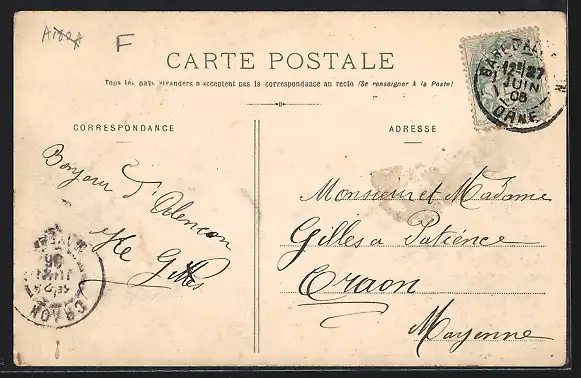 F
CARTE POSTALE
Tous les pays étrangers n'acceptent pas la correspondance au recto (Se renseigner à la Poste)
CORRESPONDANCE
ADRESSE
Bonjour d'Alencon
Gilles
Monsieur et Madame
Gilles a Patience
Craon
Mayenne
12 27
JUIN
06
ORNE
CRAON